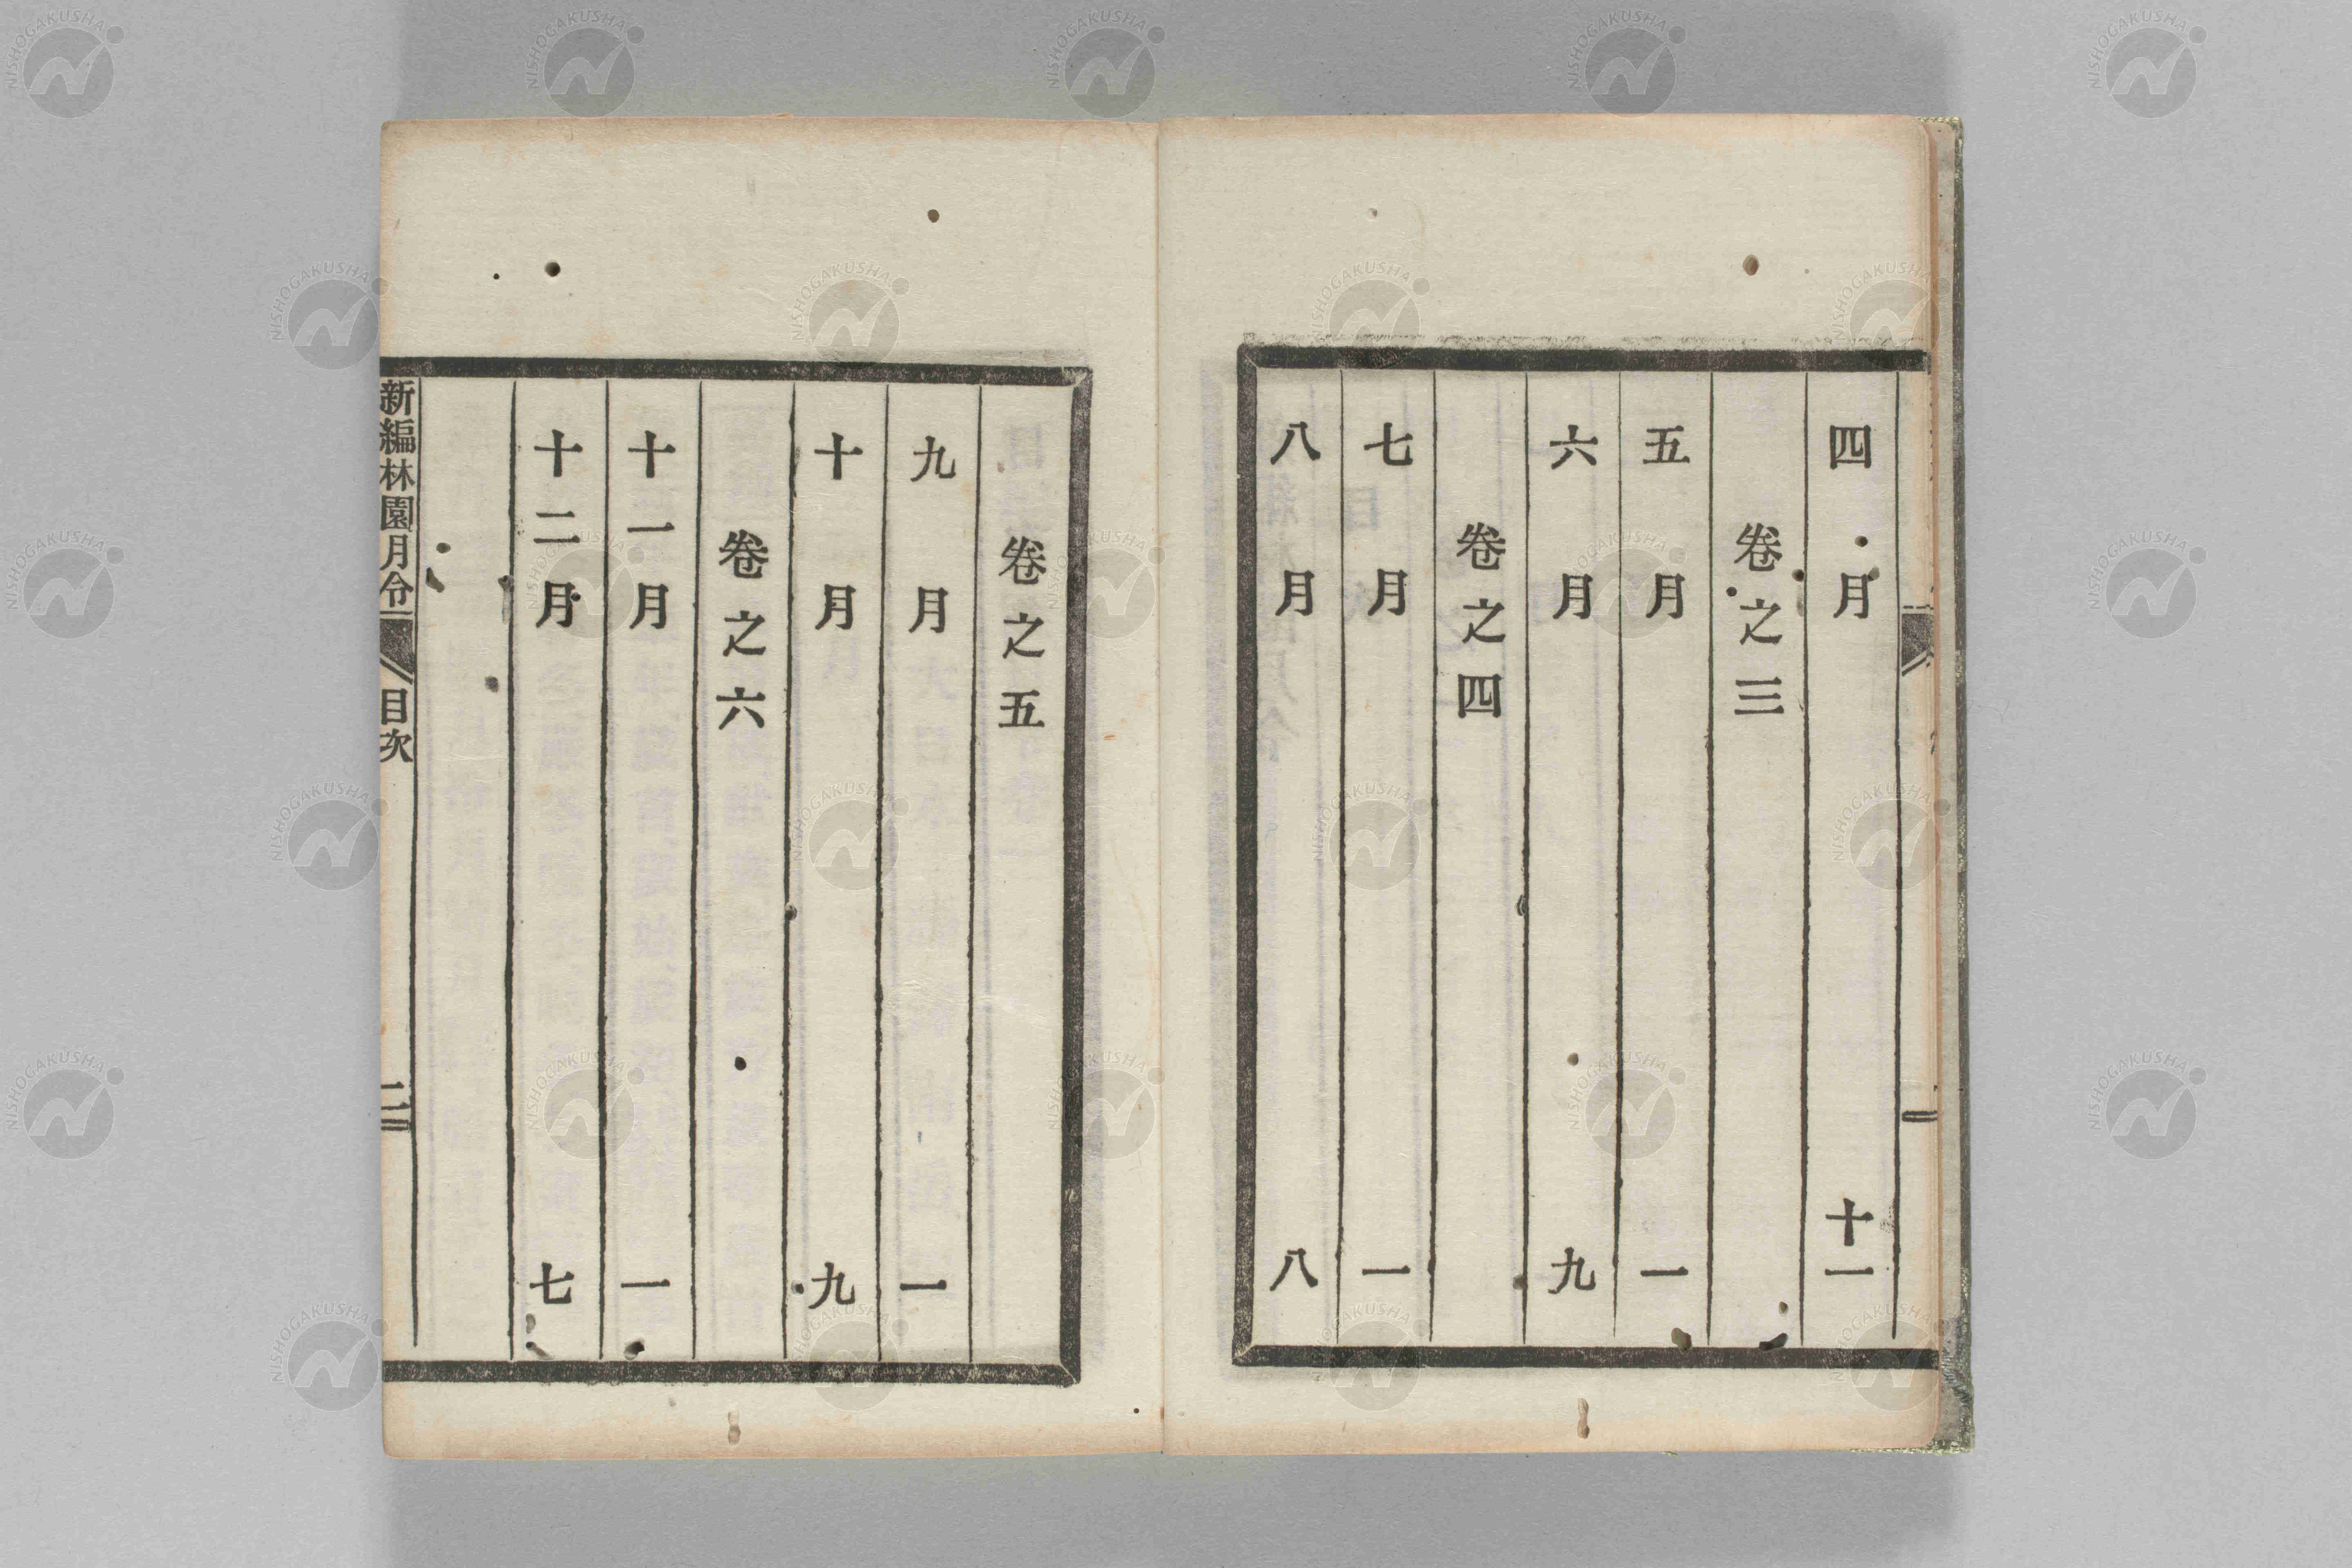 四月 十一
卷之三
五月 一
六月 九
卷之四
七月 一
八月 八
卷之五
九月 一
十月 九
卷之六
十一月 一
十二月 七
新編林園月令 目次 二
NISHOGAKUSHA